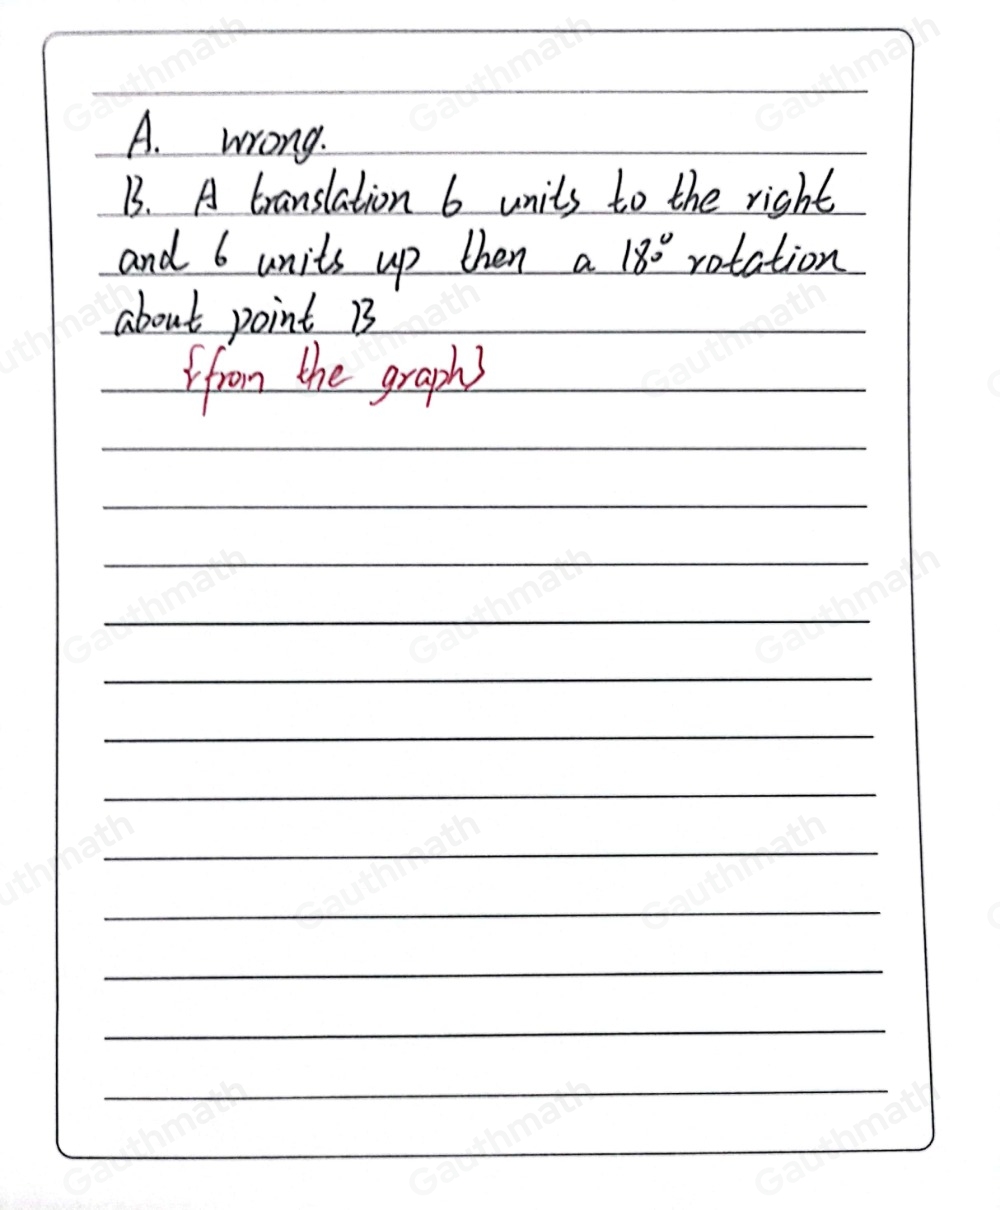 A. wrong.
B. A translation 6 units to the right
and 6 units up then a 180° rotation
about point B
{from the graph}
Gauthmath